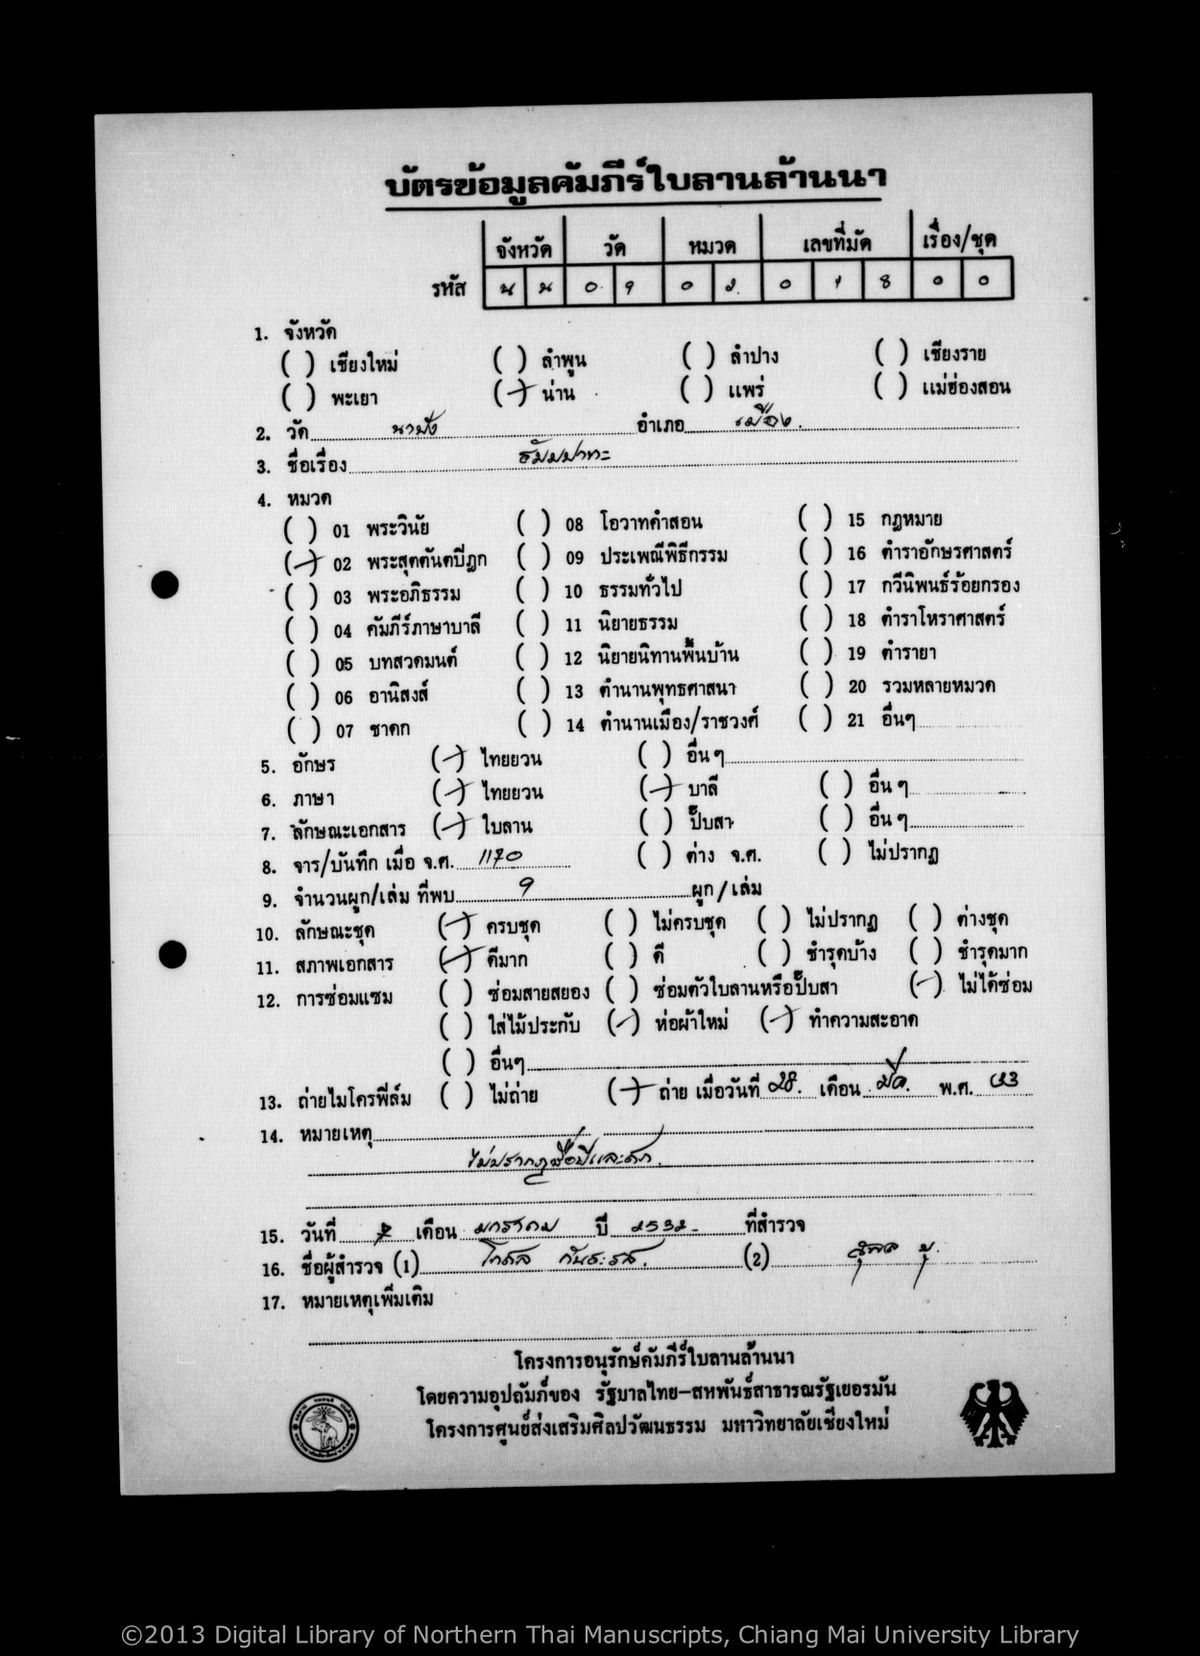 บัตรข้อมูลคัมภีร์ใบลานล้านนา
จังหวัด วัด หมวด เลขที่มัด เรื่อง/ชุด
รหัส น น 0 9 0 2 0 1 8 0 0
1. จังหวัด
( ) เชียงใหม่ ( ) ลำพูน ( ) ลำปาง ( ) เชียงราย
( ) พะเยา (/) น่าน ( ) แพร่ ( ) แม่ฮ่องสอน
2. วัด นาปัง อำเภอ เมือง.
3. ชื่อเรื่อง ธัมมปาทะ
4. หมวด
( ) 01 พระวินัย ( ) 08 โอวาทคำสอน ( ) 15 กฎหมาย
(/) 02 พระสุตตันตปิฎก ( ) 09 ประเพณีพิธีกรรม ( ) 16 ตำราอักษรศาสตร์
( ) 03 พระอภิธรรม ( ) 10 ธรรมทั่วไป ( ) 17 กวีนิพนธ์ร้อยกรอง
( ) 04 คัมภีร์ภาษาบาลี ( ) 11 นิยายธรรม ( ) 18 ตำราโหราศาสตร์
( ) 05 บทสวดมนต์ ( ) 12 นิยายนิทานพื้นบ้าน ( ) 19 ตำรายา
( ) 06 อานิสงส์ ( ) 13 ตำนานพุทธศาสนา ( ) 20 รวมหลายหมวด
( ) 07 ชาดก ( ) 14 ตำนานเมือง/ราชวงศ์ ( ) 21 อื่นๆ
5. อักษร (/) ไทยยวน ( ) อื่น ๆ
6. ภาษา (/) ไทยยวน (/) บาลี ( ) อื่น ๆ
7. ลักษณะเอกสาร (/) ใบลาน ( ) ปั๊บสา ( ) อื่น ๆ
8. จาร/บันทึก เมื่อ จ.ศ. 1170 ( ) ต่าง จ.ศ. ( ) ไม่ปรากฏ
9. จำนวนผูก/เล่ม ที่พบ 9 ผูก/เล่ม
10. ลักษณะชุด (/) ครบชุด ( ) ไม่ครบชุด ( ) ไม่ปรากฏ ( ) ต่างชุด
11. สภาพเอกสาร (/) ดีมาก ( ) ดี ( ) ชำรุดบ้าง ( ) ชำรุดมาก
12. การซ่อมแซม ( ) ซ่อมสายสยอง ( ) ซ่อมตัวใบลานหรือปั๊บสา (/) ไม่ได้ซ่อม
( ) ใส่ไม้ประกับ (/) ห่อผ้าใหม่ (/) ทำความสะอาด
( ) อื่นๆ
13. ถ่ายไมโครฟิล์ม ( ) ไม่ถ่าย (/) ถ่าย เมื่อวันที่ 28. เดือน มีค. พ.ศ. 33
14. หมายเหตุ
ไม่ปรากฏชื่อปีและศก.
15. วันที่ 7 เดือน มกราคม ปี 2532 ที่สำรวจ
16. ชื่อผู้สำรวจ (1) โกศล กันธะรส. (2)
17. หมายเหตุเพิ่มเติม
โครงการอนุรักษ์คัมภีร์ใบลานล้านนา
โดยความอุปถัมภ์ของ รัฐบาลไทย-สหพันธ์สาธารณรัฐเยอรมัน
โครงการศูนย์ส่งเสริมศิลปวัฒนธรรม มหาวิทยาลัยเชียงใหม่
©2013 Digital Library of Northern Thai Manuscripts, Chiang Mai University Library